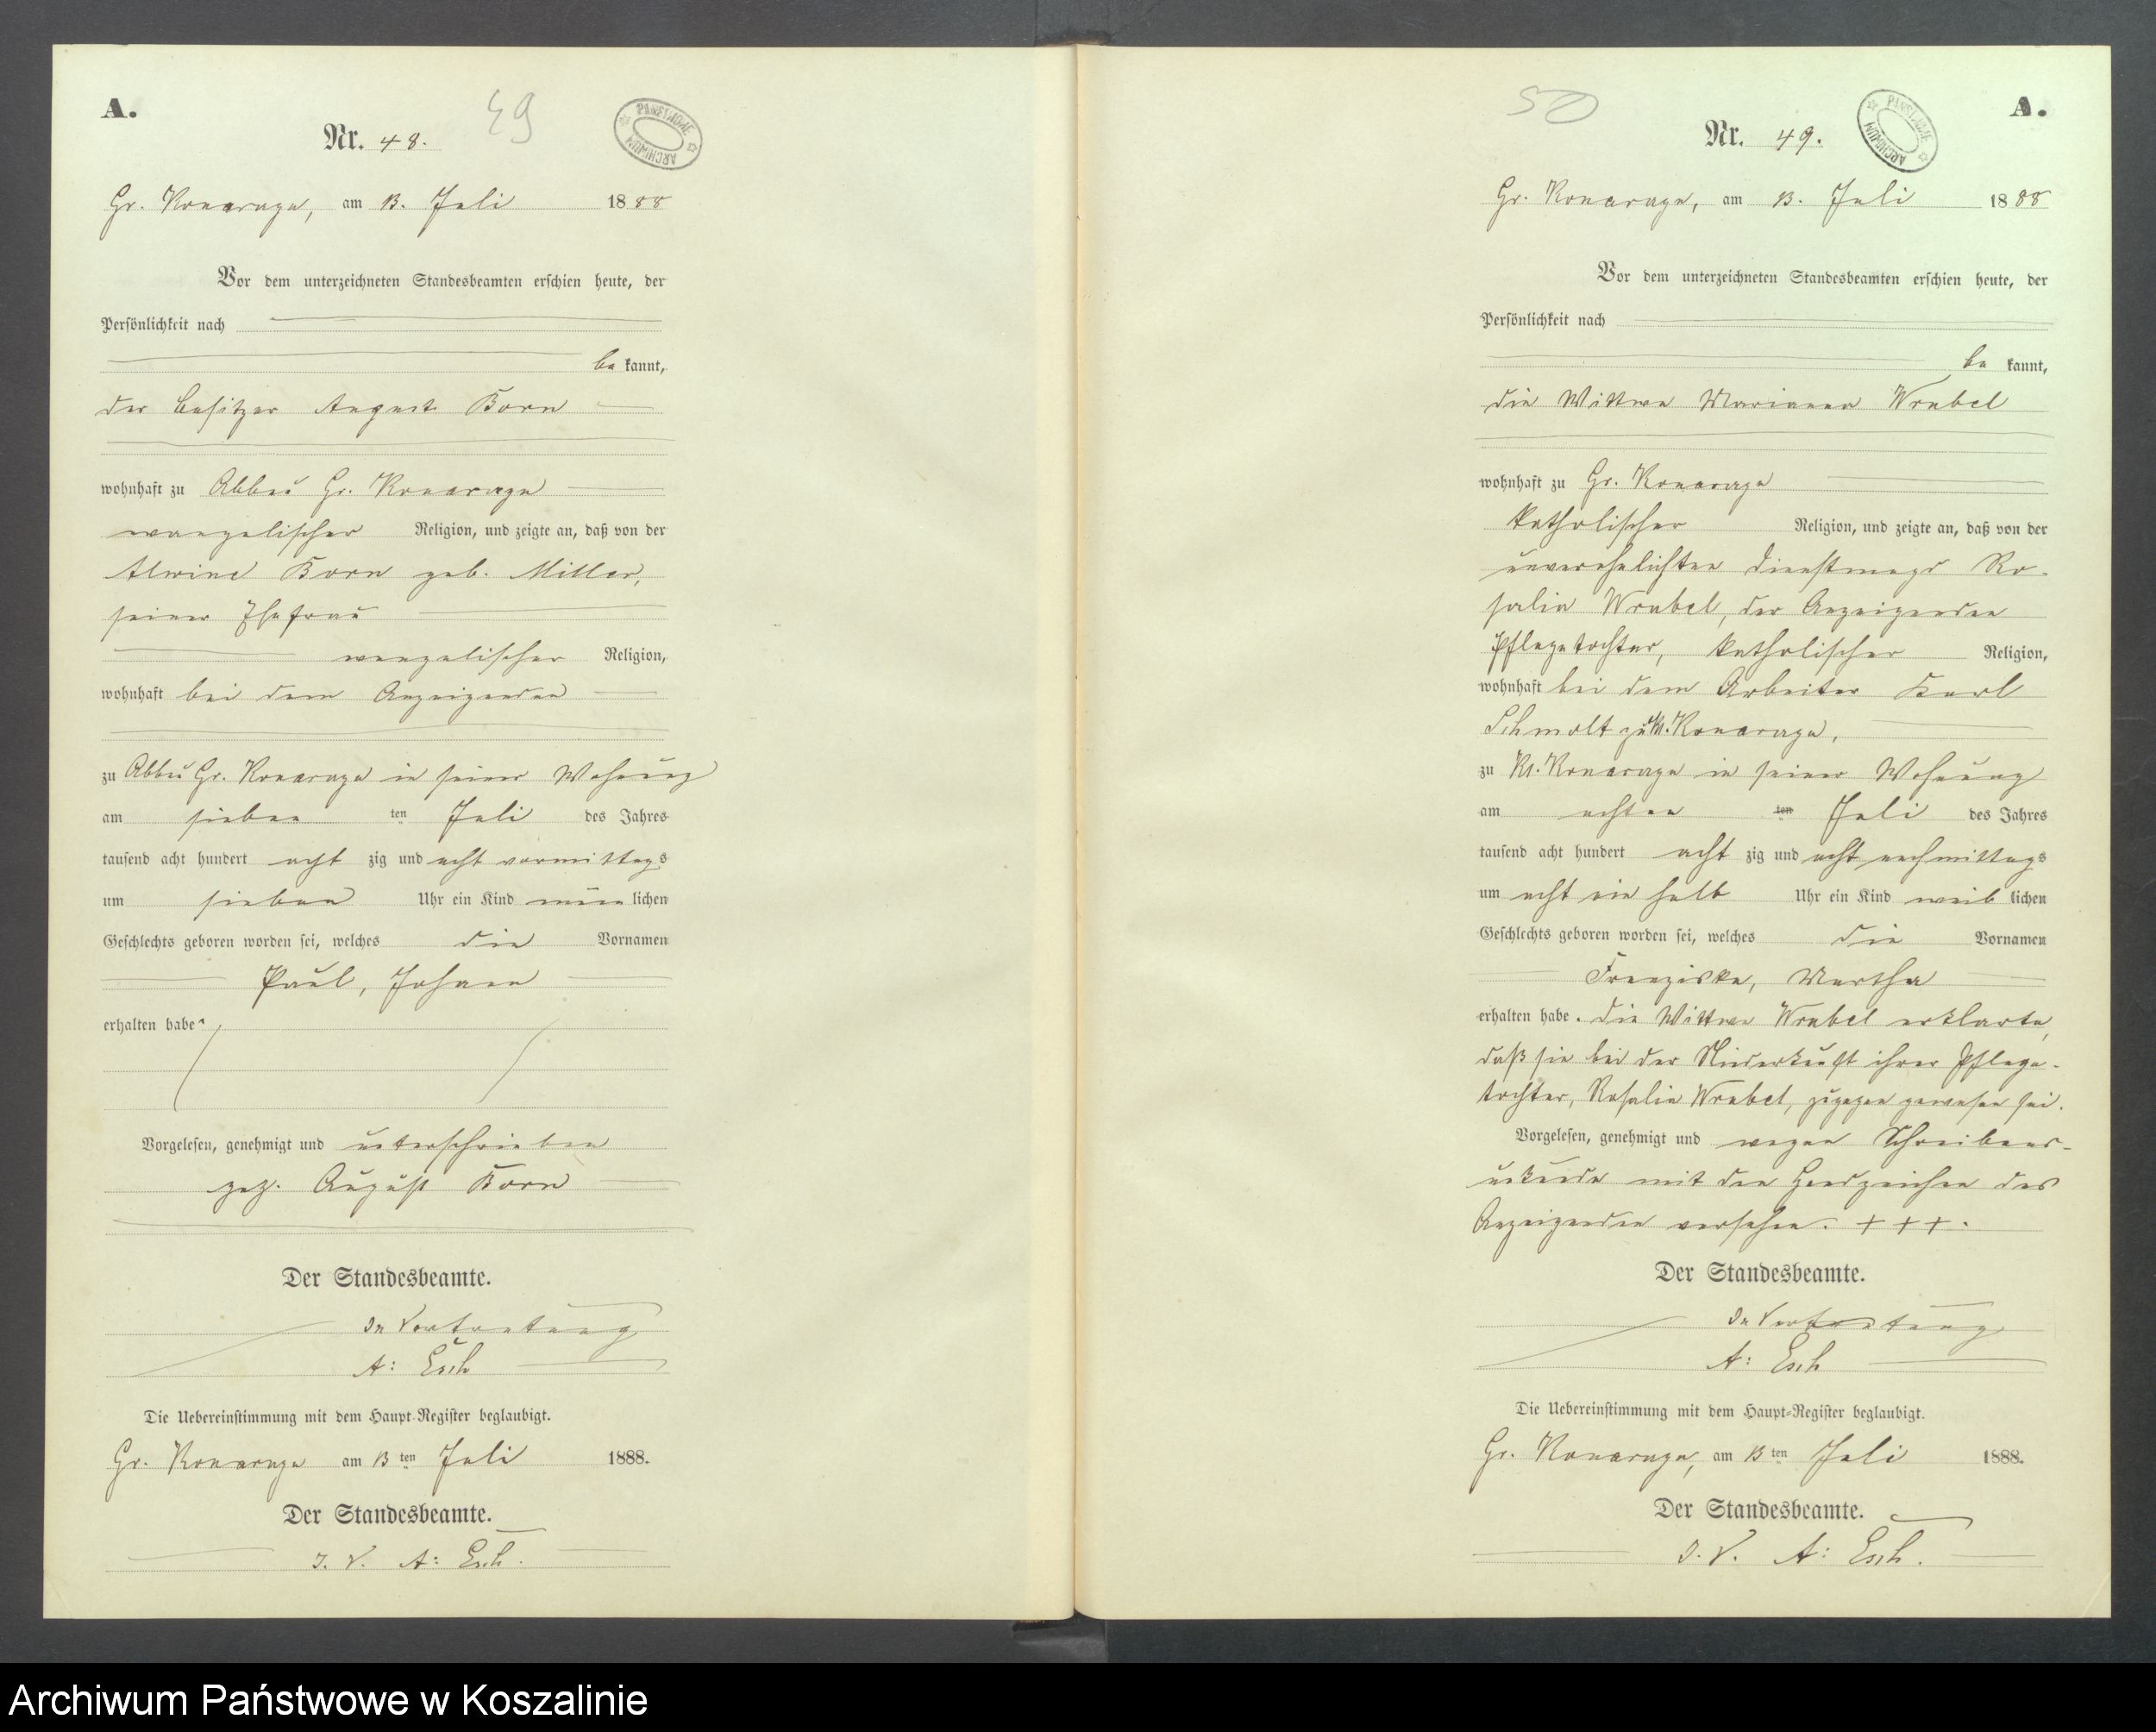 A.
Nr. 48.
49
PAŃSTWOWE
ARCHIWUM
Gr. Konarzyn, am 13. Juli 1888
Vor dem unterzeichneten Standesbeamten erschien heute, der
Persönlichkeit nach
be kannt,
der Besitzer August Born
wohnhaft zu Abbau Gr. Konarzyn
evangelischer Religion, und zeigte an, daß von der
Alwine Born geb. Miller,
seiner Ehefrau
evangelischer Religion,
wohnhaft bei dem Anzeigenden
zu Abbau Gr. Konarzyn in seiner Wohnung
am sieben ten Juli des Jahres
tausend acht hundert acht zig und acht vormittags
um sieben Uhr ein Kind männlichen
Geschlechts geboren worden sei, welches die Vornamen
Paul, Johann
erhalten habe
Vorgelesen, genehmigt und unterschrieben
gez. August Born
Der Standesbeamte.
In Vertretung
A: Esch
Die Uebereinstimmung mit dem Haupt-Register beglaubigt.
Gr. Konarzyn am 13 ten Juli 1888.
Der Standesbeamte.
I. V. A: Esch.
A.
50
Nr. 49.
PAŃSTWOWE
ARCHIWUM
Gr. Konarzyn, am 13. Juli 1888
Vor dem unterzeichneten Standesbeamten erschien heute, der
Persönlichkeit nach
be kannt,
die Wittwe Marianna Wrubel
wohnhaft zu Gr. Konarzyn
katholischer Religion, und zeigte an, daß von der
unverehelichten Dienstmagd Ro-
salie Wrubel, der Anzeigenden
Pflegetochter, katholischer Religion,
wohnhaft bei dem Arbeiter Karl
Schmolt zu Kl. Konarzyn,
zu Kl. Konarzyn in seiner Wohnung
am achten ten Juli des Jahres
tausend acht hundert acht zig und acht nachmittags
um acht ein halb Uhr ein Kind weiblichen
Geschlechts geboren worden sei, welches die Vornamen
Franziska, Martha
erhalten habe. Die Wittwe Wrubel erklärte,
daß sie bei der Niederkunft ihrer Pflege-
tochter, Rosalie Wrubel, zugegen gewesen sei.
Vorgelesen, genehmigt und wegen Schreibens-
unkunde mit den Handzeichen des
Anzeigenden versehen. +++.
Der Standesbeamte.
In Vertretung
A: Esch
Die Uebereinstimmung mit dem Haupt-Register beglaubigt.
Gr. Konarzyn, am 13 ten Juli 1888.
Der Standesbeamte.
I. V. A: Esch.
Archiwum Państwowe w Koszalinie